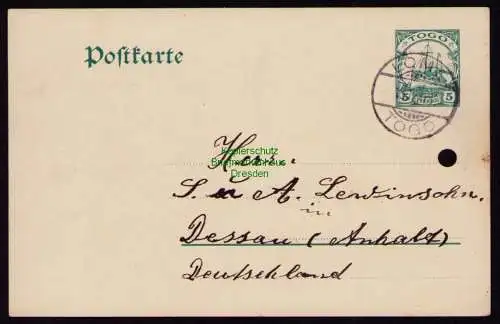 Postkarte
TOGO
5 5
TOGO
Herrn
Kopierschutz
Briefmarkenhaus
Dresden
S. u A. Lewinsohn.
in
Dessau (Anhalt)
Deutschland